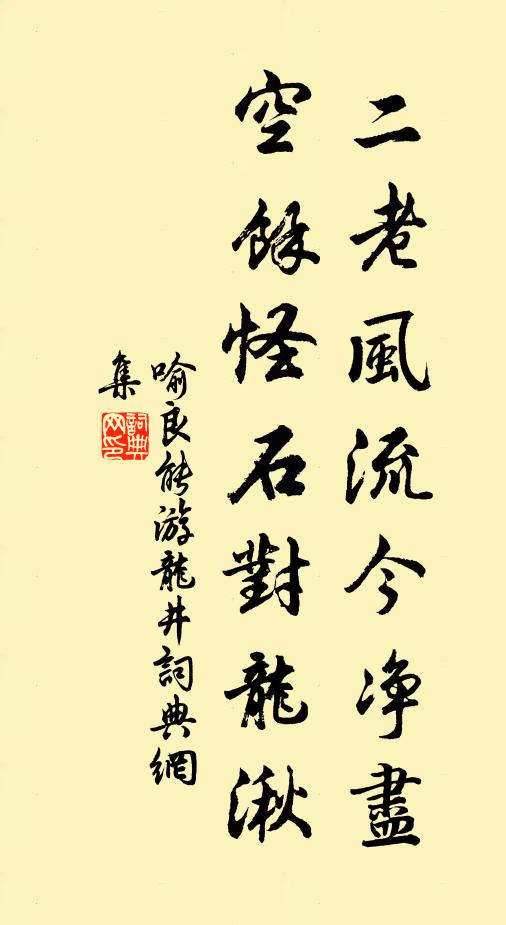 二老風流今净盡
空餘怪石對龍湫
喻良能游龍井詞典網
集
詞典
网印